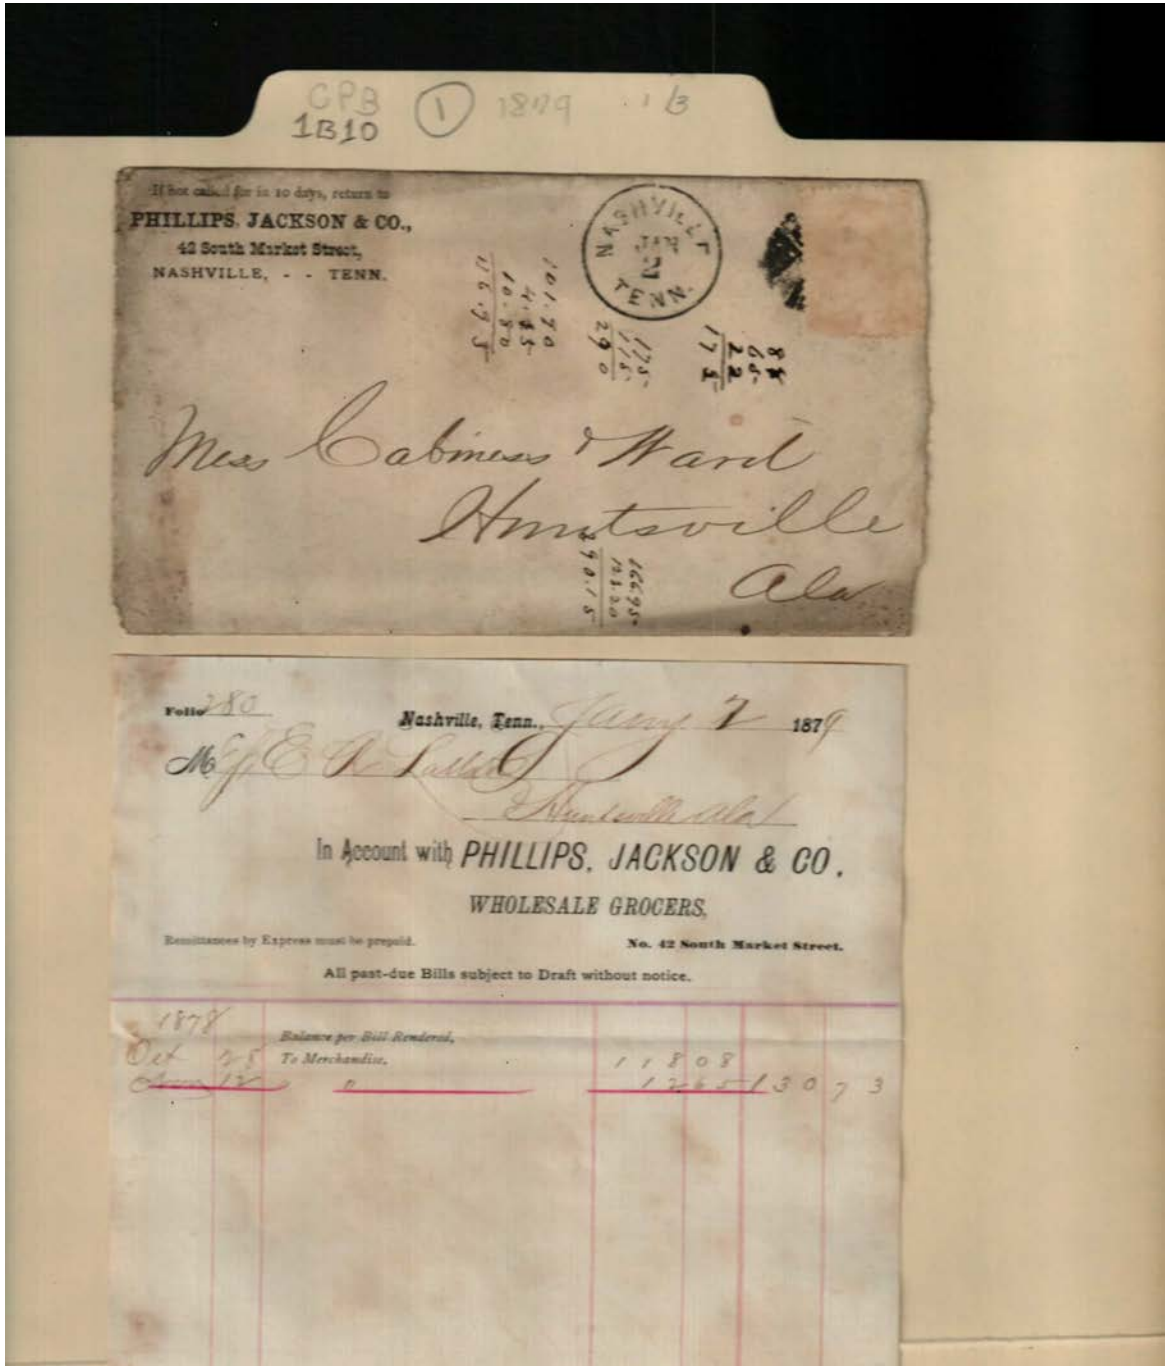 CPB ① 1879 1/3
1B10
If not called for in 10 days, return to
PHILLIPS, JACKSON & CO.,
42 South Market Street,
NASHVILLE, - - TENN.
NASHVILLE
JAN
2
TENN.
101.70
4.45
10.80
116.95
175
115
290
88
65
22
175
Mess Cabiness & Ward
Huntsville
Ala
16695
123.20
290.15
Folio 280
Nashville, Tenn., Jany 2 1879
M E R
Huntsville Ala
In Account with PHILLIPS, JACKSON & CO.
WHOLESALE GROCERS,
Remittances by Express must be prepaid. No. 42 South Market Street.
All past-due Bills subject to Draft without notice.
1878
Balance per Bill Rendered,
Oct 28 To Merchandise, 118 08
12 " 12 65 130 73